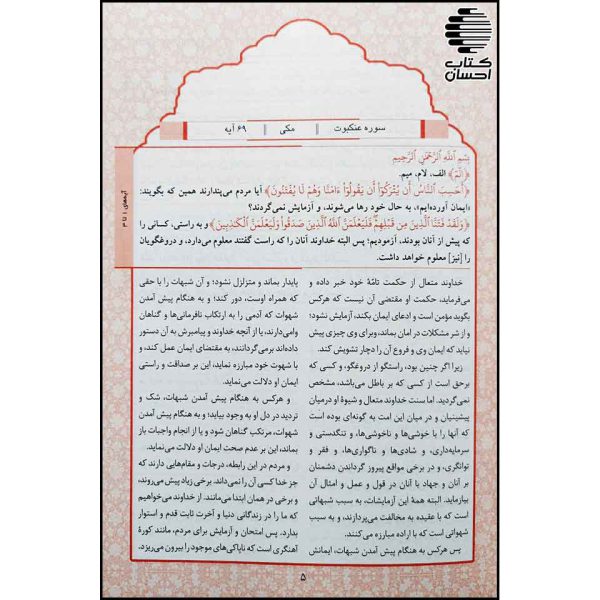 کتاب
احسان
سوره عنکبوت || مکی || ۶۹ آیه
آیه‌های ۱ تا ۳
بِسْمِ اللَّهِ الرَّحْمَنِ الرَّحِيمِ
﴿الٓمٓ﴾ الف، لام، میم.
﴿أَحَسِبَ النَّاسُ أَن يُتْرَكُوٓا۟ أَن يَقُولُوٓا۟ ءَامَنَّا وَهُمْ لَا يُفْتَنُونَ﴾ آیا مردم می‌پندارند همین که بگویند:
«ایمان آورده‌ایم»، به حال خود رها می‌شوند، و آزمایش نمی‌گردند؟
﴿وَلَقَدْ فَتَنَّا الَّذِينَ مِن قَبْلِهِمْ فَلَيَعْلَمَنَّ اللَّهُ الَّذِينَ صَدَقُوا۟ وَلَيَعْلَمَنَّ الْكَٰذِبِينَ﴾ و به راستی، کسانی را
که پیش از آنان بودند، آزمودیم؛ پس البته خداوند آنان را که راست گفتند معلوم می‌دارد، و دروغگویان
را [نیز] معلوم خواهد داشت.
خداوند متعال از حکمت تامّهٔ خود خبر داده و
می‌فرماید، حکمت او مقتضی آن نیست که هرکس
بگوید مؤمن است و ادعای ایمان بکند، آزمایش نشود؛
و از شر مشکلات در امان بماند، وبرای وی چیزی پیش
نیاید که ایمان وی و فروع آن را دچار تشویش کند.
زیرا اگر چنین بود، راستگو از دروغگو، و کسی که
برحق است از کسی که بر باطل می‌باشد، مشخص
نمی‌گردید. اما سنت خداوند متعال و شیوهٔ او درمیان
پیشینیان و در میان این امت به گونه‌ای بوده است
که آنها را با خوشی‌ها و ناخوشی‌ها، و تنگدستی و
سرمایه‌داری، و شادی‌ها و ناگواری‌ها، و فقر و
توانگری، و در برخی مواقع پیروز گرداندن دشمنان
بر آنان و جهاد با آنان در قول و عمل و امثال آن
بیازماید. البته همهٔ این آزمایشات، به سبب شبهاتی
است که با عقیده به مخالفت می‌پردازند، و به سبب
شهواتی است که با اراده مبارزه می‌کنند.
پس هرکس به هنگام پیش آمدن شبهات، ایمانش
پایدار بماند و متزلزل نشود؛ و آن شبهات را با حقی
که همراه اوست، دور کند؛ و به هنگام پیش آمدن
شهوات که آدمی را به ارتکاب نافرمانی‌ها و گناهان
وامی‌دارند، یا از آنچه خداوند و پیامبرش به آن دستور
داده‌اند برمی‌گردانند، به مقتضای ایمان عمل کند، و
با شهوت خود مبارزه نماید، این بر صداقت و راستی
ایمان او دلالت می‌نماید.
و هرکس به هنگام پیش آمدن شبهات، شک و
تردید در دل او به وجود بیاید؛ و به هنگام پیش آمدن
شهوات، مرتکب گناهان شود و یا از انجام واجبات باز
بماند، این بر عدم صحت ایمان او دلالت می‌نماید.
و مردم در این رابطه، درجات و مقام‌هایی دارند که
جز خدا کسی آن را نمی‌داند. برخی زیاد پیش می‌روند،
و برخی در همان ابتدا می‌مانند. از خداوند می‌خواهیم
که ما را در زندگانی دنیا و آخرت ثابت قدم و استوار
بدارد. پس امتحان و آزمایش برای مردم، مانند کورهٔ
آهنگری است که ناپاکی‌های موجود را بیرون می‌ریزد.
۵